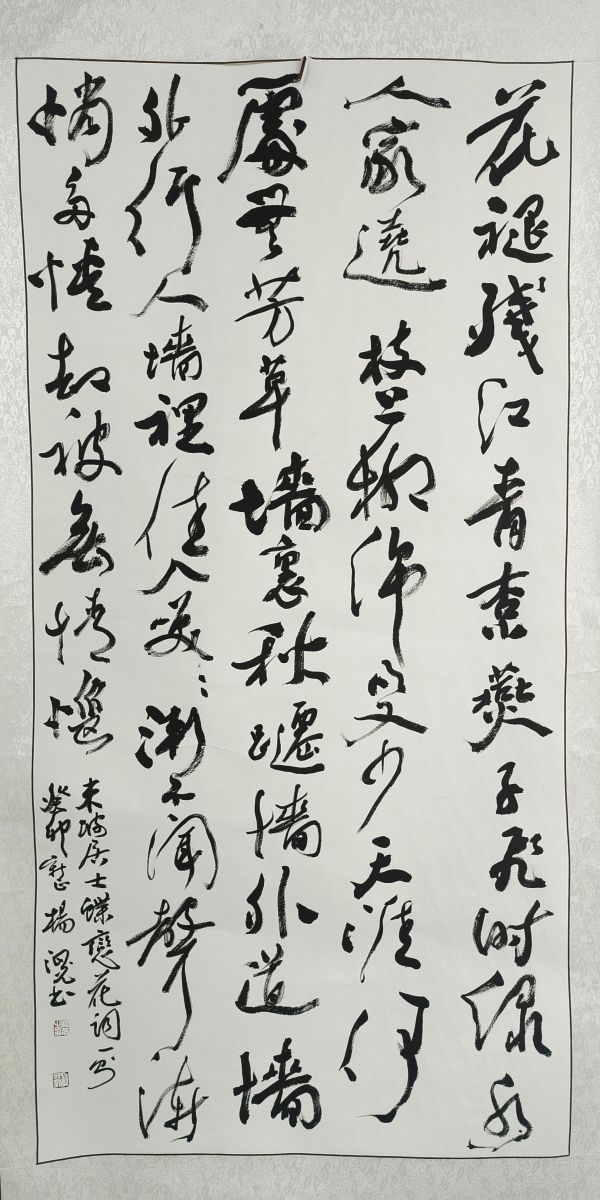 花褪殘紅青杏燕子飛時綠水
人家遶枝上柳綿吹又少天涯何
處無芳草墻裏秋韆墻外道墻
外行人墻裡佳人笑〻漸不聞聲漸
悄多情却被無情惱
東坡居士蝶戀花詞一首
癸卯 楊 書